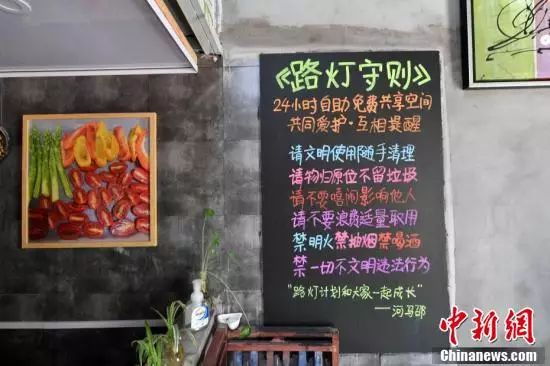 《路灯守则》
24小时自助免费共享空间
共同爱护·互相提醒
请文明使用随手清理
请物归原位不留垃圾
请不要嘻闹影响他人
请不要浪费适量取用
禁明火禁抽烟禁喝酒
禁一切不文明违法行为
“路灯计划和大家一起成长”
——河马邵
中新网
CHINANEWS.COM